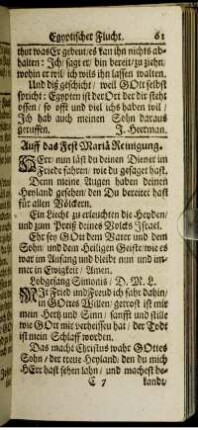 Egyptischer Flucht. 61
thut was Er gebeut/ es kan ihn nichts ab-
halten: Ich/ sagt er/ bin bereit/ zu ziehn/
wohin er wil/ ich wils ihn lassen walten.
Und diß geschicht/ weil GOtt selbst
spricht: Egypten ist der Ort der dir steht
offen/ so offt und viel ichs haben wil/
Ich hab auch meinen Sohn daraus
geruffen. J. Heerman.
Auff das Fest Mariä Reinigung.
HErr/ nun läst du deinen Diener im
Friede fahren/ wie du gesaget hast.
Denn meine Augen haben deinen
Heyland gesehen/ den Du bereitet hast
für allen Völckern.
Ein Liecht zu erleuchten die Heyden/
und zum Preiß deines Volcks Israel.
Ehr sey GOtt dem Vater und dem
Sohn/ und dem Heiligen Geiste/ wie es
war im Anfang und bleibt nun und im-
mer in Ewigkeit/ Amen.
Lobgesang Simonis/ D. M. L.
MIt Fried und Freud ich fahr dahin/
in GOttes Willen/ getrost ist mir
mein Hertz und Sinn/ sanfft und stille
wie GOtt mir verheissen hat/ der Todt
ist mein Schlaff worden.
Das macht Christus wahr GOttes
Sohn/ der treue Heyland/ den du mich
HErr hast sehen lahn/ und machest be-
C 7 kandt/